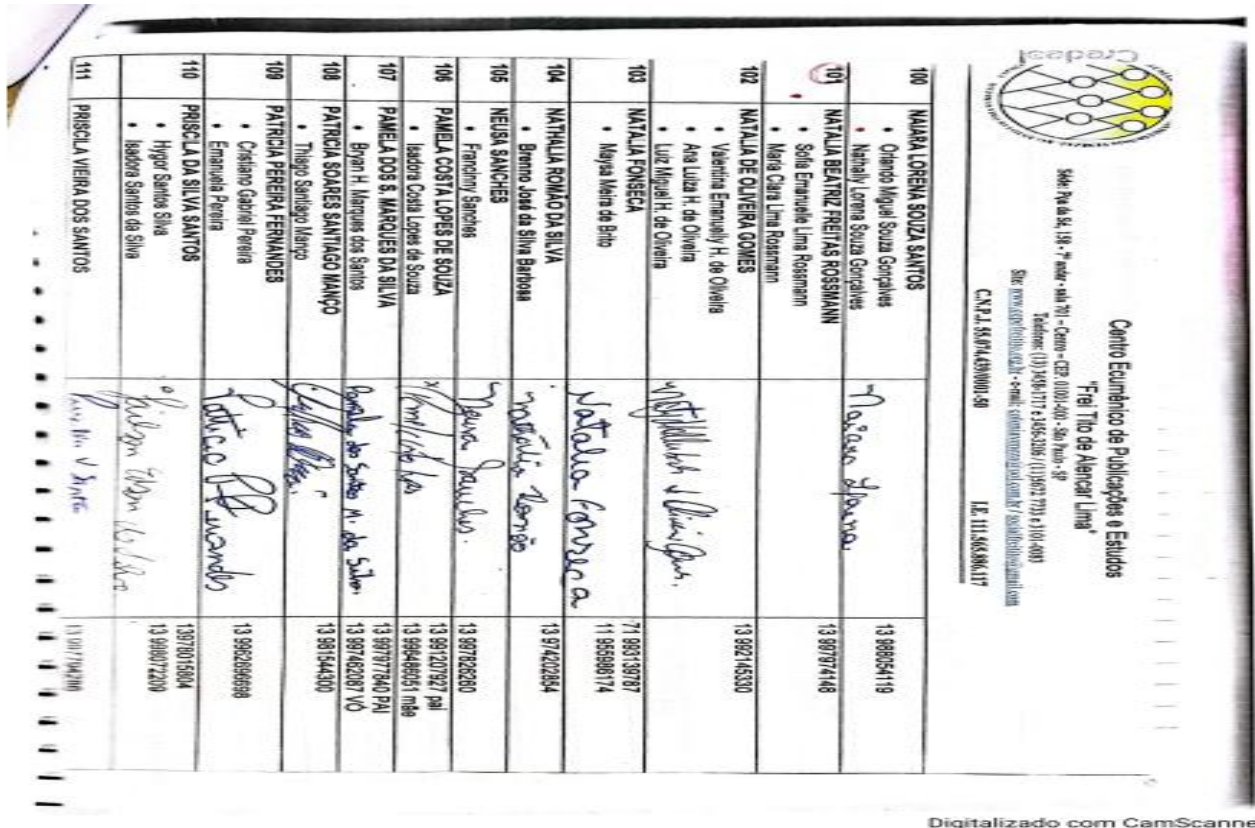 Credesl
Centro Ecumênico de Publicações e Estudos
"Frei Tito de Alencar Lima"
Sede: Pça da Sé, 158 - 7º andar - sala 701 – Centro – CEP. 01001-000 - São Paulo - SP
C.N.P.J. 55.074.439/0001-50 I.E. 111.565.886.117
100 NAIARA LORENA SOUZA SANTOS
• Orlando Miguel Souza Gonçalves
• Nathally Lorena Souza Gonçalves
Naiara Lorena
13 988054119
101 NATALIA BEATRIZ FREITAS ROSSMANN
• Sofia Emanuelle Lima Rossmann
• Maria Clara Lima Rossmann
13 997974148
102 NATALIA DE OLIVEIRA GOMES
• Valentina Emanuelly H. de Oliveira
• Ana Luiza H. de Oliveira
• Luiz Miguel H. de Oliveira
13 992145330
103 NATALIA FONSECA
• Maysa Maira de Brito
Natalia Fonseca
71 993139787
11 955986174
104 NATHALIA ROMÃO DA SILVA
• Brenno José da Silva Barbosa
Nathália Romão
13 974202854
105 NEUSA SANCHES
• Francinny Sanches
Neusa Sanches.
13 997828280
106 PAMELA COSTA LOPES DE SOUZA
• Isadora Costa Lopes de Souza
13 991207927 pai
13 998486051 mãe
107 PAMELA DOS S. MARQUES DA SILVA
• Bryan H. Marques dos Santos
Pamela dos Santos M. da Silva
13 997977840 PAI
13 997462087 VÓ
108 PATRICIA SOARES SANTIAGO MANÇO
• Thiago Santiago Manço
13 981544300
109 PATRICIA PEREIRA FERNANDES
• Cristiano Gabriel Pereira
• Emanuela Pereira
Patricia P Fernandes
13 996269698
110 PRISCLA DA SILVA SANTOS
• Hygor Santos Silva
• Isadora Santos da Silva
13978015804
13 998072209
111 PRISCLA VIEIRA DOS SANTOS
Digitalizado com CamScanne